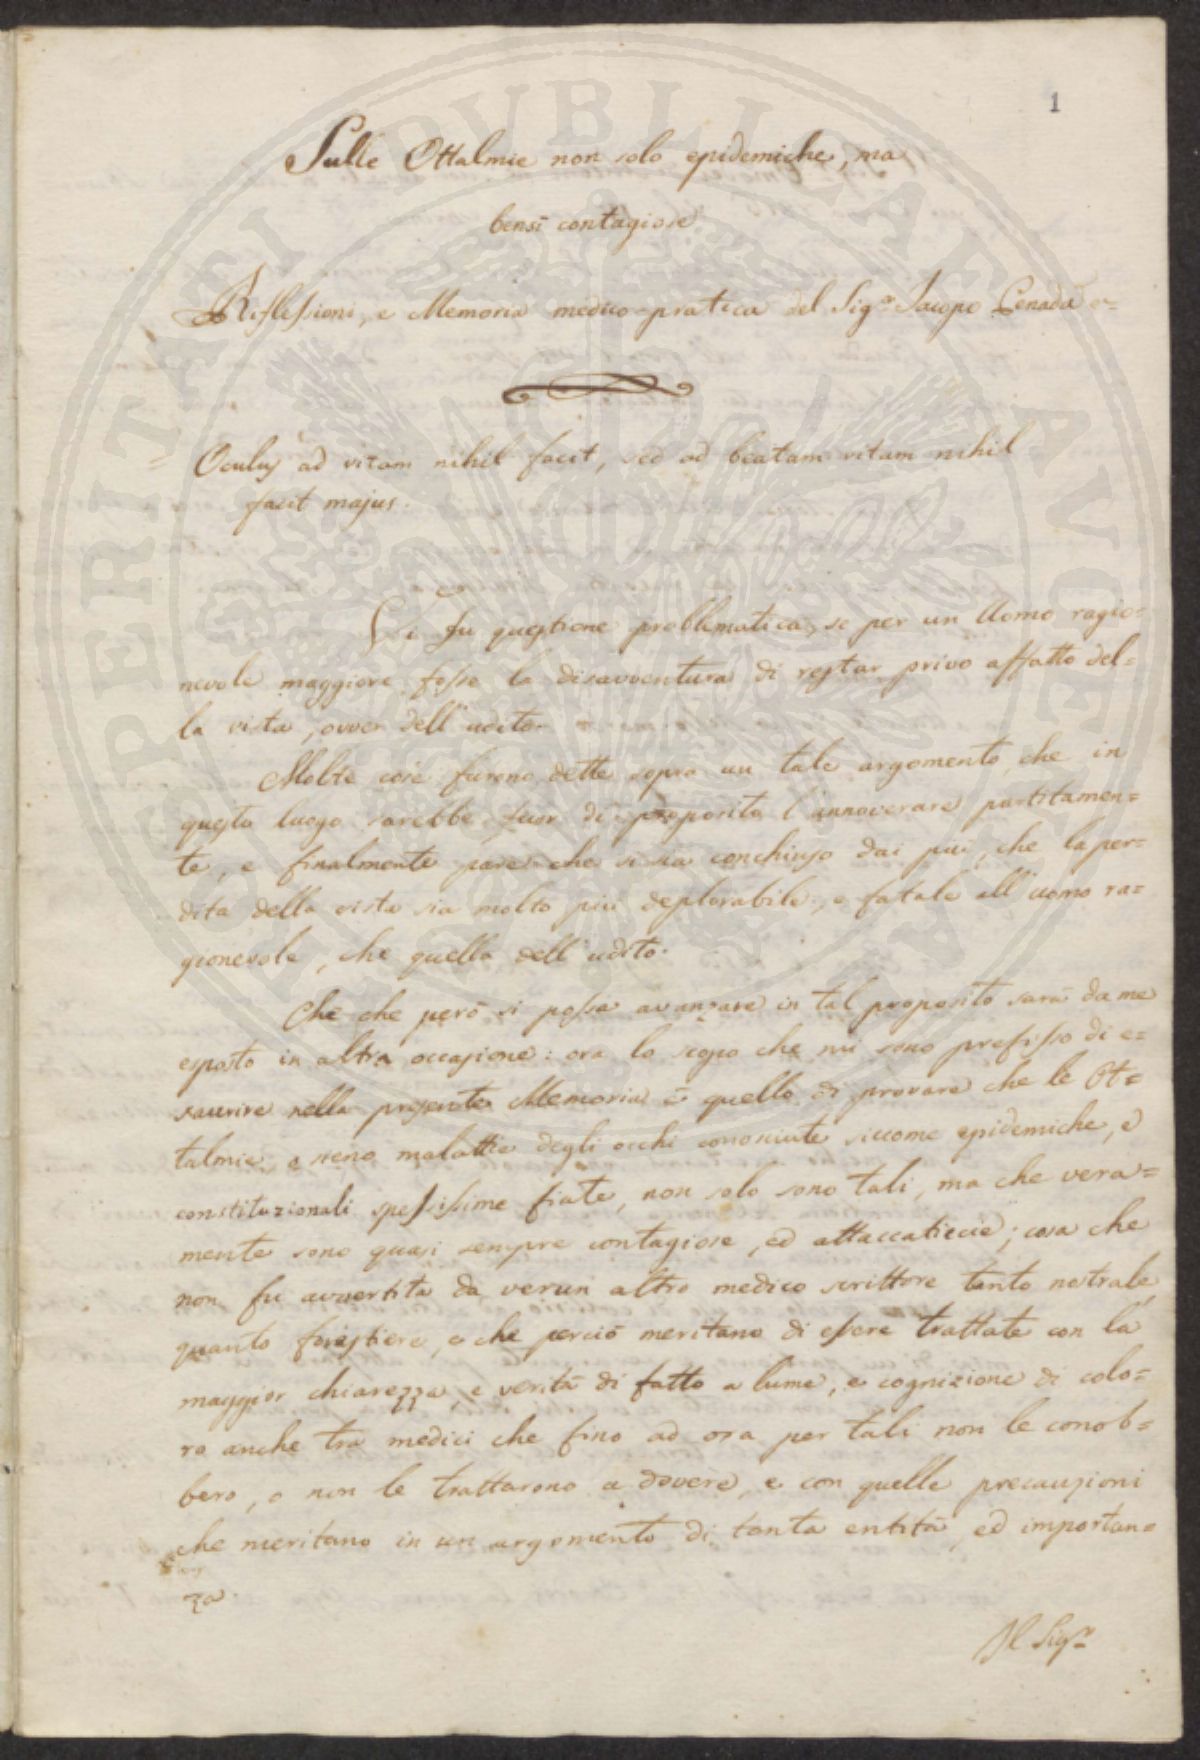 1
Sulle Ottalmie non solo epidemiche, ma
bensì contagiose
Riflessioni, e Memoria medico-pratica del Sigr. Jacopo Penada
Oculus ad vitam nihil facit, sed ad beatam vitam nihil
facit majus.
Si fu questione problematica, se per un Uomo ragio=
nevole maggiore fosse la disavventura di restar privo affatto del=
la vista, ovver dell'udito.
Molte cose furono dette sopra un tale argomento, che in
questo luogo sarebbe fuor di proposito l'innoverare partitamen=
te, e finalmente pare che si sia conchiuso dai più, che la per=
dita della vista sia molto più deplorabile, e fatale all'uomo ra=
gionevole, che quella dell'udito.
Che che però si possa avanzare in tal proposito sarà da me
esposto in altra occasione: ora lo scopo che mi sono prefisso di e=
saurire nella presente Memoria è quello di provare che le Ot=
talmie, o sieno malattie degli occhi conosciute siccome epidemiche, e
constituzionali spessissime fiate, non solo sono tali, ma che vera=
mente sono quasi sempre contagiose, ed attaccaticcie; cosa che
non fu avvertita da verun altro medico scrittore tanto nostrale,
quanto forestiere, e che perciò meritano di essere trattate con la
maggior chiarezza, e verità di fatto a lume, e cognizione di colo=
ro anche tra medici che fino ad ora per tali non le conob=
bero, o non le trattarono a dovere, e con quelle precauzioni
che meritano in un argomento di tanta entità, ed importan=
za.
Il Sigr.
SPERITATI PVBLICAE AVGE